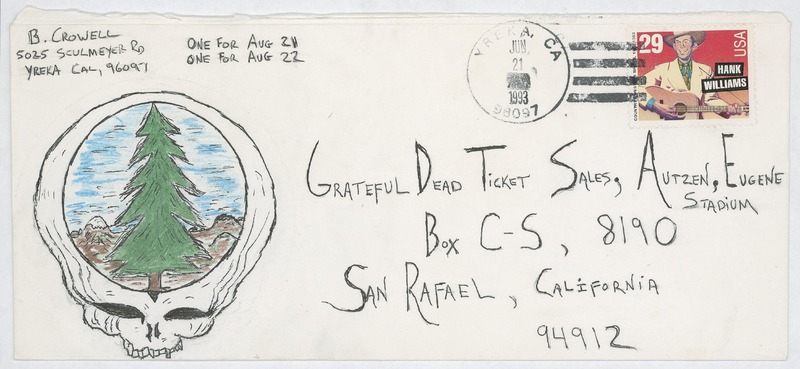 B. CROWELL
5025 SCULMEYER RD
YREKA CAL, 96097
ONE FOR AUG 21
ONE FOR AUG 22
YREKA, CA
JUN
21
1993
96097
29
USA
HANK
WILLIAMS
GRATEFUL DEAD TICKET SALES, AUTZEN, EUGENE
STADIUM
BOX C-S, 8190
SAN RAFAEL, CALIFORNIA
94912